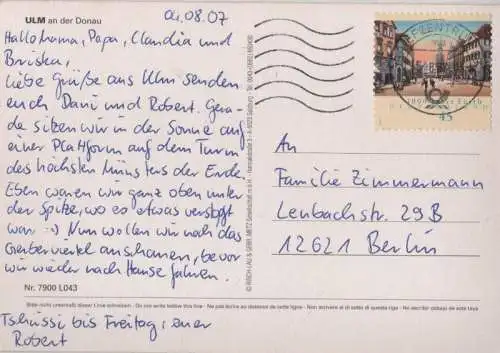 ULM an der Donau
04.08.07
Hallo Mama, Papa, Claudia und
Briska,
liebe Grüße aus Ulm senden
euch Dani und Robert. Gera-
de sitzen wir in der Sonne auf
einer Plattform auf dem Turm
des höchsten Münsters der Erde.
Eben waren wir ganz oben unter
der Spitze, wo es etwas verstopft
war :-) Nun wollen wir noch das
Gerberviertel anschauen, bevor
wir wieder nach Hause fahren.
Nr. 7900 L043
Bitte nicht unterhalb dieser Linie schreiben - Do not write below this line - Ne pas écrire au dessous de cette ligne - Non scrivere al di sotto di questa riga - No escribir debajo de esta raya
Tschüssi bis Freitag, euer
Robert
BRIEFZENTRUM
1000 Jahre Fürth
45
An
Familie Zimmermann
Lenbachstr. 29B
12621 Berlin